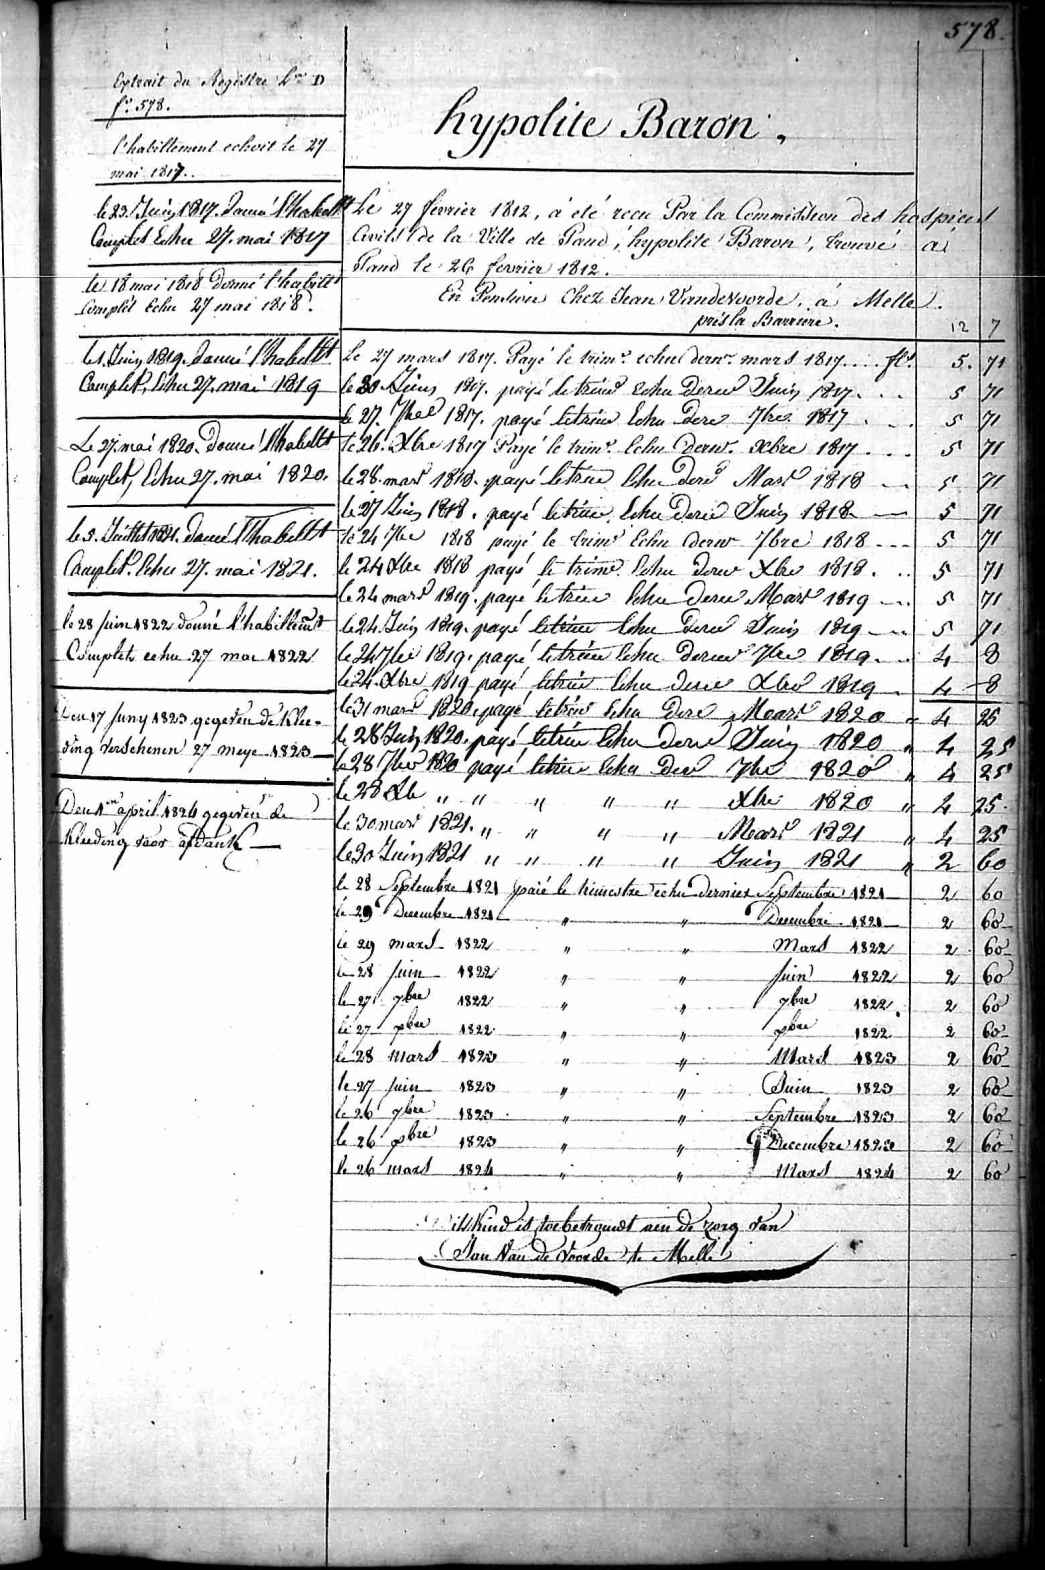 578.
Extrait du Registre Lre D
fo. 578.
l'habillement echoit le 27
mai 1817..
le 23. Juin 1817. Donné l'habillt
Complet Echu 27. mai 1817
le 18 mai 1818 Donné l'habillt
Complét Echu 27 mai 1818.
le 1. Juin 1819. Donné l'habillt
Complet, Echu 27. mai 1819
Le 27. mai 1820. Donné l'habillt
Complet, Echu 27. mai 1820.
le 3. Juillet 1821. Donné l'habillt
Complet. Echu 27. mai 1821.
le 28 juin 1822 donné l'habillemt
Complet echu 27 mai 1822
Den 17 Juny 1823 gegeven de klee-
ding verschenen 27 meye 1823
Den 1en april 1824 gegeven de
kleeding voor afdank
hypolite Baron.
Le 27 fevrier 1812, a été recu Par la Commission des hospices
Civils de la Ville de Gand, hypolite Baron, trouvé à
Gand le 26 fevrier 1812.
En Pension Chez Jean Vandevoorde, á Melle.
prés la Barriere. 12 7
Le 27 mars 1817. Payé le trimr. echu dernr. mars 1817.... fls. 5. 71
le 30. Juin 1817. payé le trim Echu Dern Juin 1817... 5 71
le 27. 7bre 1817. payé le trim Echu Dern 7bre 1817 .. 5 71
le 26. Xbre 1817 Payé le trimr. Echu dernr. xbre 1817 ... 5 71
le 28. mars 1818. payé le trim Echu Dern Mars 1818 -- 5 71
le 27 Juin 1818. payé le trim. Echu Dern Juin 1818 -- 5 71
le 24 7bre 1818 payé le trimr Echu dernr 7bre 1818 --- 5 71
le 24 Xbre 1818 payé le trimr. Echu dernr Xbre 1818. .. 5 71
le 24 mars 1819. payé le trim Echu Dern Mars 1819 -.. 5 71
le 24. Juin 1819. payé le trim Echu Dern Juin 1819 -.. 5 71
le 24 7bre 1819. payé le trim Echu Dern 7bre 1819. .. 4 8
le 24. Xbre 1819 payé le trim Echu Dern Xbre 1819 . 4 - 8
le 31 mars 1820. payé le trim Echu Dern Mars 1820 " 4 25
le 28 Juin 1820. payé le trim Echu Dern Juin 1820 " 4 25
le 28 7bre 1820 payé le trim Echu Der 7bre 1820 " 4 25
le 28 Xb " " " " " Xbre 1820 " 4 25.
le 30 mars 1821. " " " " Mars 1821 " 4 25
le 30 Juin 1821 " " " " Juin 1821 " 2 60
le 28 Septembre 1821 paié le trimestre echu dernier Septembre 1821 2 60
le 29 Decembre 1821 " " Decembre 1821 2 60
le 29 mars 1822 " " Mars 1822 2 60
le 28 juin 1822 " " juin 1822 2 60
le 27 7bre 1822 " " 7bre 1822. 2 60
le 27 xbre 1822 " " xbre 1822 2 60
le 28 mars 1823 " " Mars 1823 2 60
le 27 juin 1823 " " Juin 1823 2 60
le 26 7bre 1823 " " Septembre 1823 2 60
le 26 xbre 1823 " " Decembre 1823 2 60
le 26 mars 1824 " " Mars 1824 2 60
Dits kind is toebetrouwt aen de zorg van
Jan Van de Voorde te Melle